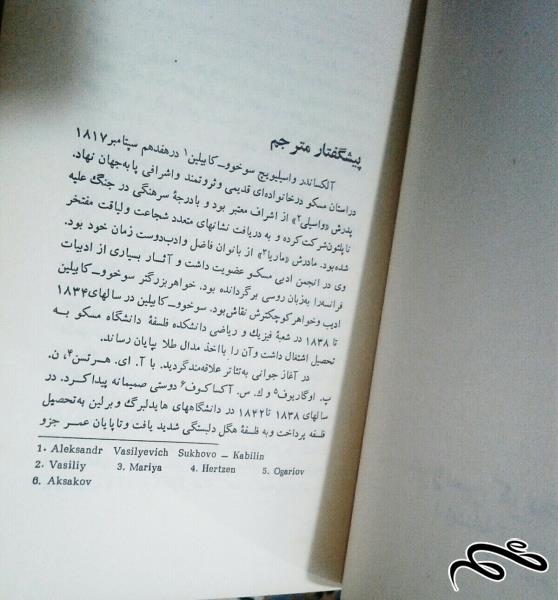 پیشگفتار مترجم
آلکساندر واسیلیویچ سوخوو-کابیلین۱ در هفدهم سپتامبر ۱۸۱۷
در استان مسکو در خانواده‌ای قدیمی و ثروتمند و اشرافی پا به جهان نهاد.
پدرش «واسیلی۲» از اشراف معتبر بود و با درجهٔ سرهنگی در جنگ علیه
ناپلئون شرکت کرده و به دریافت نشانهای متعدد شجاعت و لیاقت مفتخر
شده بود. مادرش «ماریا۳» از بانوان فاضل و ادب‌دوست زمان خود بود.
وی در انجمن ادبی مسکو عضویت داشت و آثار بسیاری از ادبیات
فرانسه را به زبان روسی برگردانده بود. خواهر بزرگتر سوخوو-کابیلین
ادیب و خواهر کوچکترش نقاش بود. سوخوو-کابیلین در سالهای ۱۸۳۴
تا ۱۸۳۸ در شعبهٔ فیزیک و ریاضی دانشکده فلسفهٔ دانشگاه مسکو به
تحصیل اشتغال داشت و آن را با اخذ مدال طلا بپایان رساند.
در آغاز جوانی به تئاتر علاقه‌مند گردید. با آ. ای. هرتسن۴، ن.
پ. اوگاریوف۵ و ك. س. آکساکوف۶ دوستی صمیمانه پیدا کرد. در
سالهای ۱۸۳۸ تا ۱۸۴۲ در دانشگاههای هایدلبرگ و برلین به تحصیل
فلسفه پرداخت و به فلسفهٔ هگل دلبستگی شدید یافت و تا پایان عمر جزو
1. Aleksandr Vasilyevich Sukhovo – Kabilin
2. Vasiliy 3. Mariya 4. Hertzen 5. Ogariov
6. Aksakov